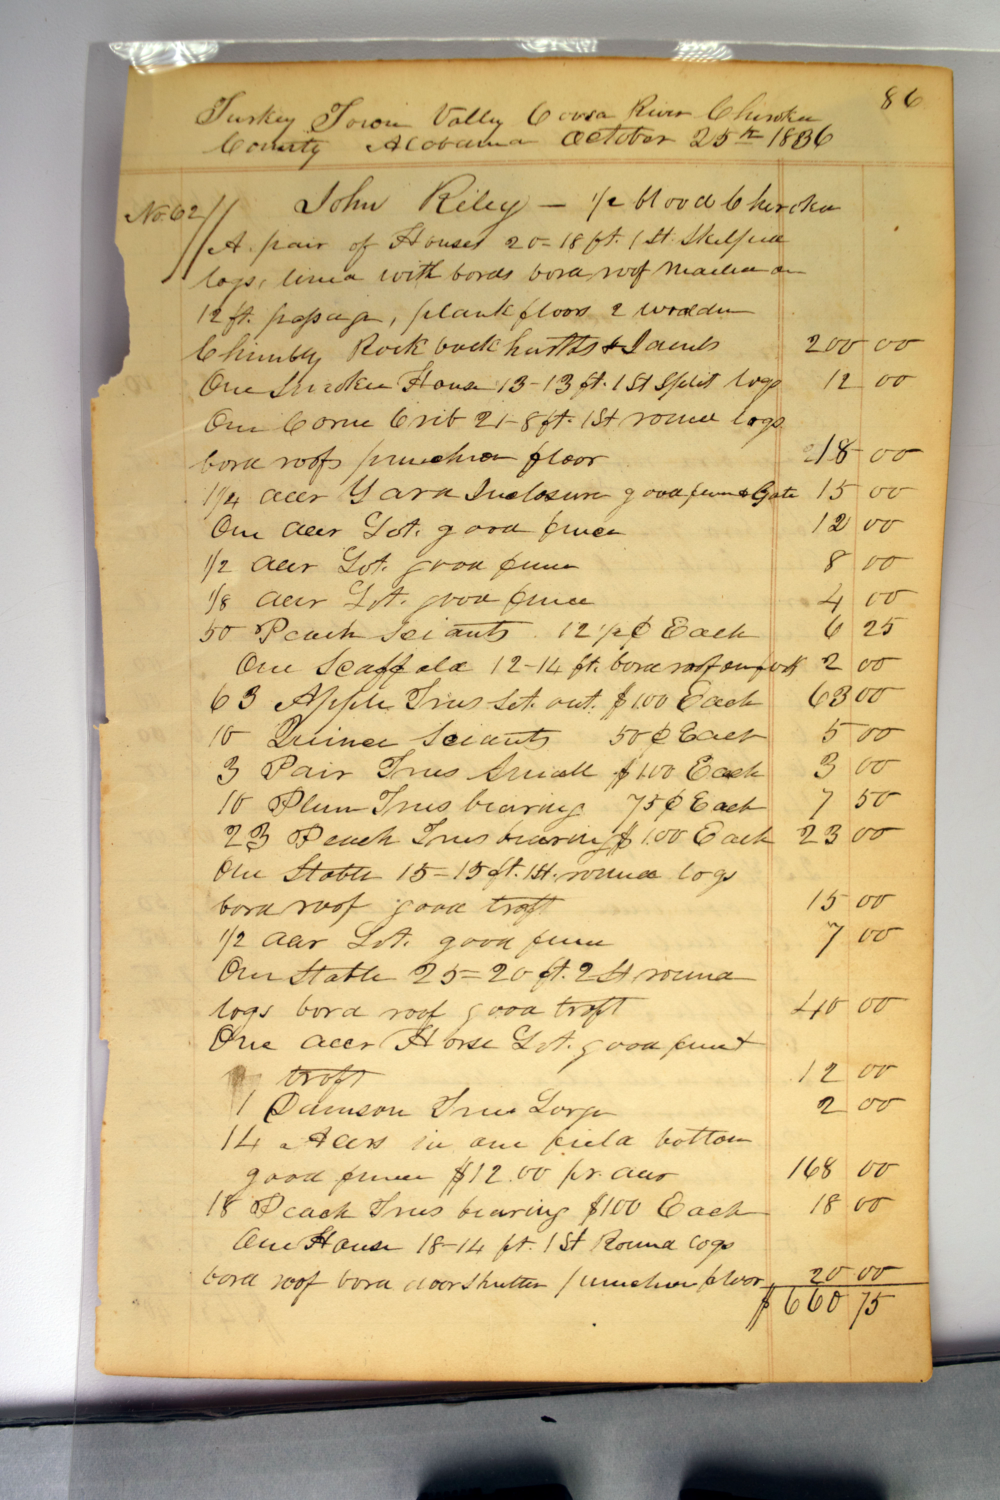 86
Turkey Town Valley Coosa River Cherokee
County Alabama October 25th 1836
No. 62 // John Riley — 1/2 blood Cherokee
A pair of Houses 20=18 ft. 1 St. Skelped
logs, lined with bords bord roof nailed on
12 ft. passage, plank floors 2 wooden
Chimbly Rock back harths & Jambs 200 00
One Smoke House 13-13 ft. 1 St Split logs 12 00
One Corne Crib 21-8 ft. 1 St round logs
bord roofs punchion floor 18 00
1/4 acer Yard Inclosure good fence & Gate 15 00
One acer Lot. good fence 12 00
1/2 acer Lot. good fence 8 00
1/8 acer Lot. good fence 4 00
50 Peach Sciants 12 1/2 ¢ Each 6 25
One Scaffold 12-14 ft. bord roof 2 00
63 Apple Trees Set. out. $1.00 Each 63 00
10 Quince Sciants 50 ¢ Each 5 00
3 Pair Trees Small $1.00 Each 3 00
10 Plum Trees bearing 75 ¢ Each 7 50
23 Peach Trees bearing $1.00 Each 23 00
One Stable 15=15 ft. 1 St. round logs
bord roof good troft 15 00
1/2 acer Lot. good fence 7 00
One Stable 25=20 ft. 2 St round
logs bord roof good troft 40 00
One acer Horse Lot. good fence &
troft 12 00
1 Damson Tree Large 2 00
14 Acers in one field bottom
good fence $12.00 pr. acer 168 00
18 Peach Trees bearing $1.00 Each 18 00
One House 18-14 ft. 1 St Round logs
bord roof bord door Shutter punchion floor 20 00
$ 660 75